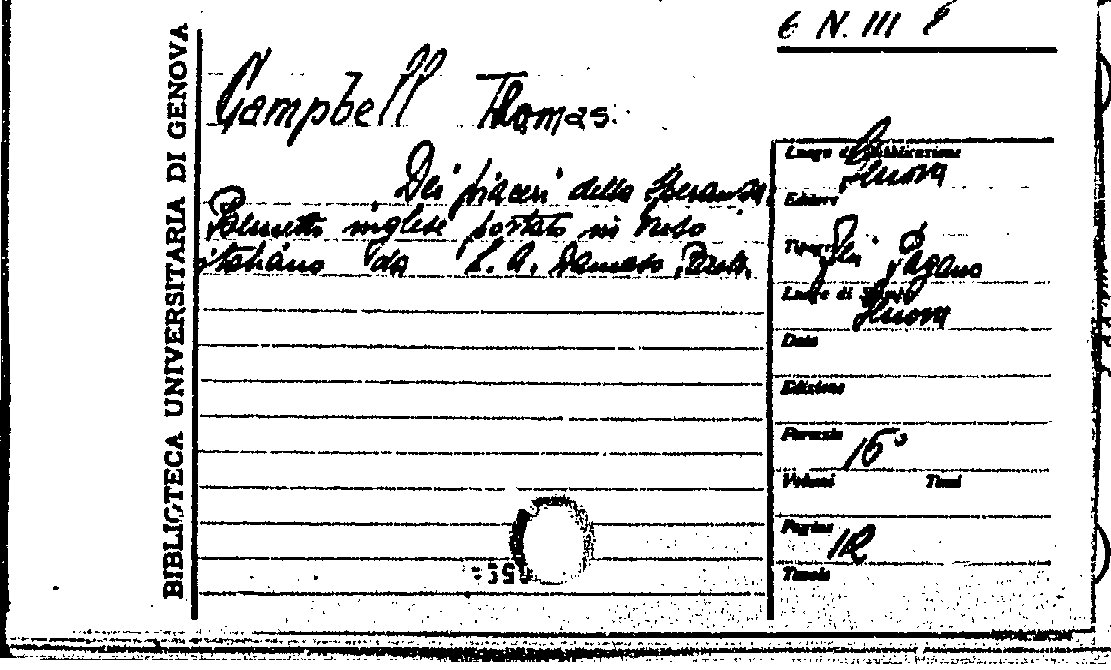 6 N. III 8
BIBLIOTECA UNIVERSITARIA DI GENOVA
Campbell Thomas.
Dei piaceri della Speranza,
Poemetto inglese portato in verso
italiano da L. A. Damaso
Luogo di Pubblicazione
Genova
Editore
Tipografo
Pagano
Luogo di Stampa
Genova
Data
Edizione
Formato 16°
Volumi Tomi
Pagine 112
Tavole